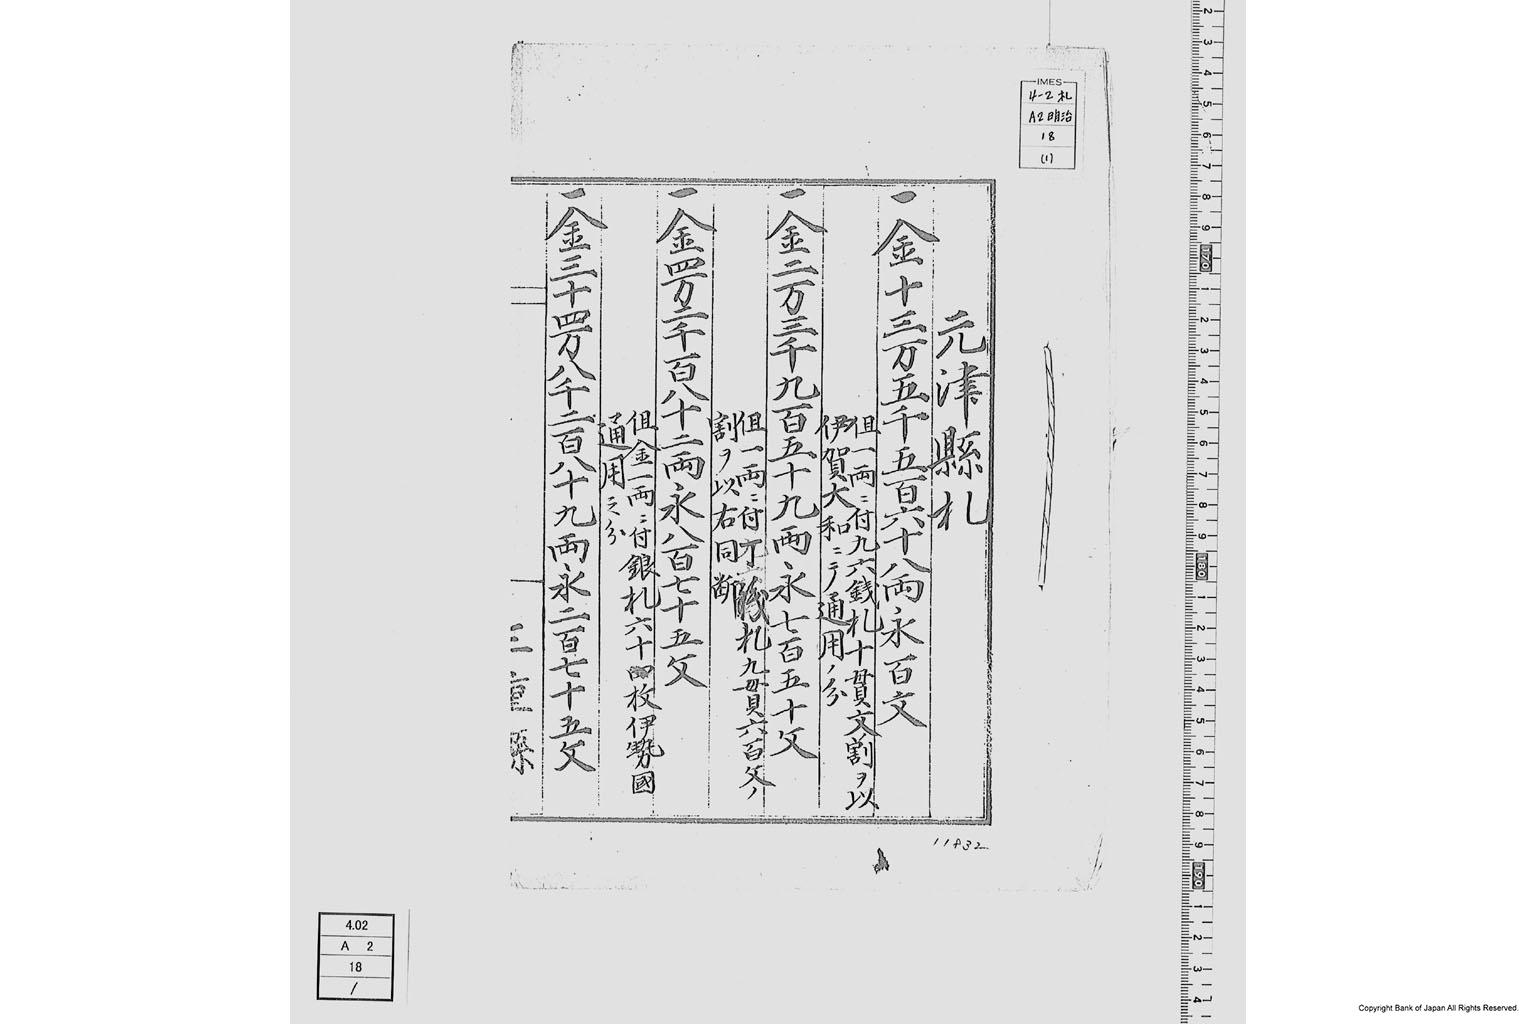 元津縣札
一金十三万五千五百六十八両永百文
但一両ニ付九六銭札十貫文割ヲ以
伊賀大和ニテ通用ノ分
一金二万三千九百五十九両永七百五十文
但一両ニ付 札九貫六百文ノ
割ヲ以右同断
一金四万二千百八十二両永八百七十五文
但金一両ニ付銀札六十四枚伊勢國
通用之分
一金三十四万八千二百八十九両永二百七十五文
三重縣
IMES
4-2 札
A2明治
18
(1)
11832
4.02
A 2
18
/
Copyright Bank of Japan All Rights Reserved.